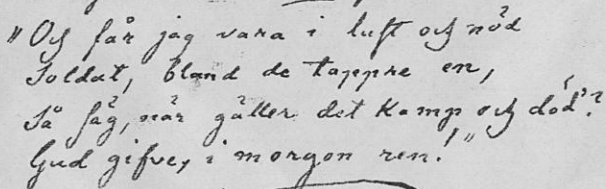 "Och får jag vara i lust och nöd
Soldat, bland de tappre en,
Så säg, när gäller det kamp och död"?
Gud gifve, i morgon ren!"